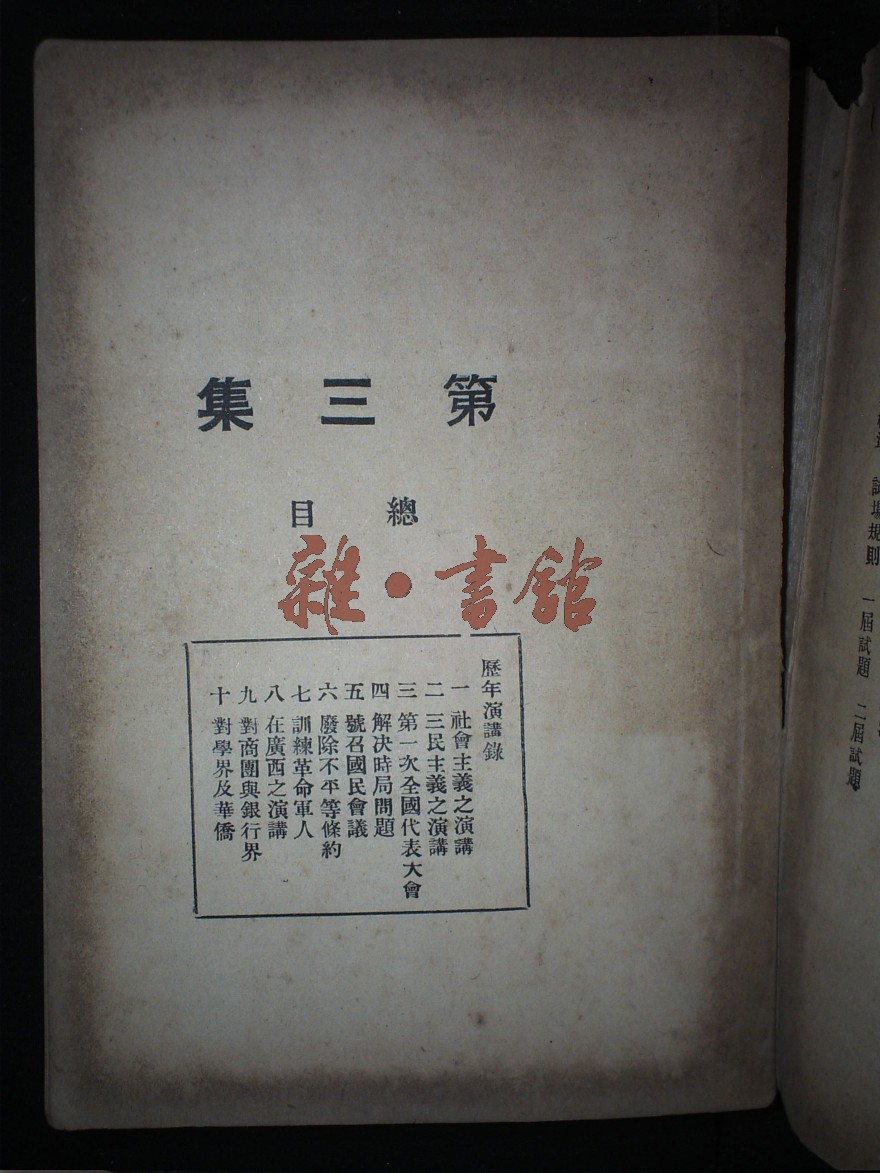 第三集
總目
雜·書館
歷年演講錄
一 社會主義之演講
二 三民主義之演講
三 第一次全國代表大會
四 解決時局問題
五 號召國民會議
六 廢除不平等條約
七 訓練革命軍人
八 在廣西之演講
九 對商團與銀行界
十 對學界及華僑
試場規則 一屆試題 二屆試題